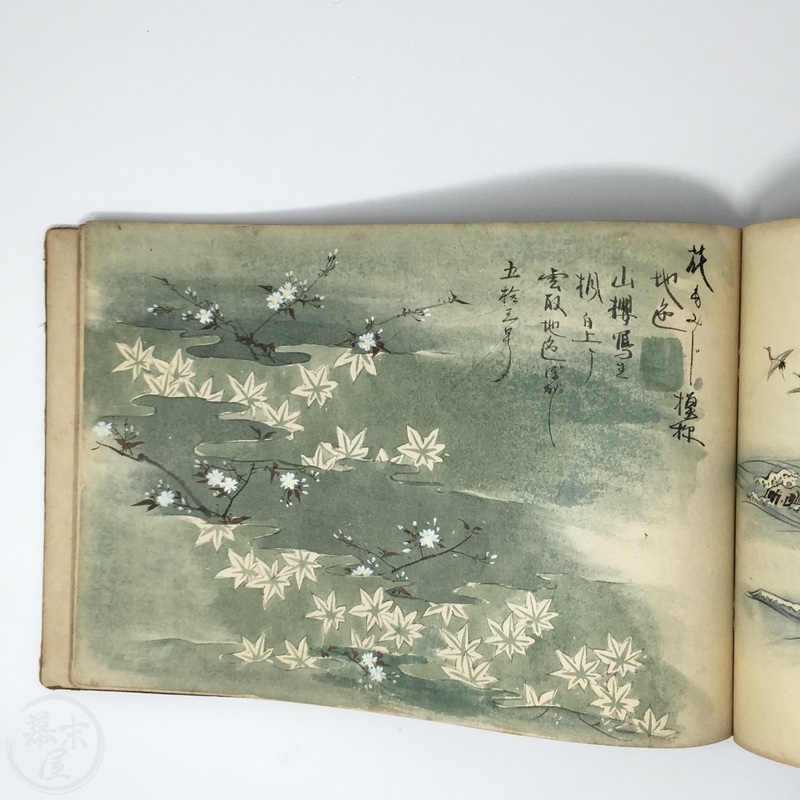 花もみじ 模様
地色
山櫻写生
楓白上り
雲取地色ぼかし
五拾三号
幕末屋